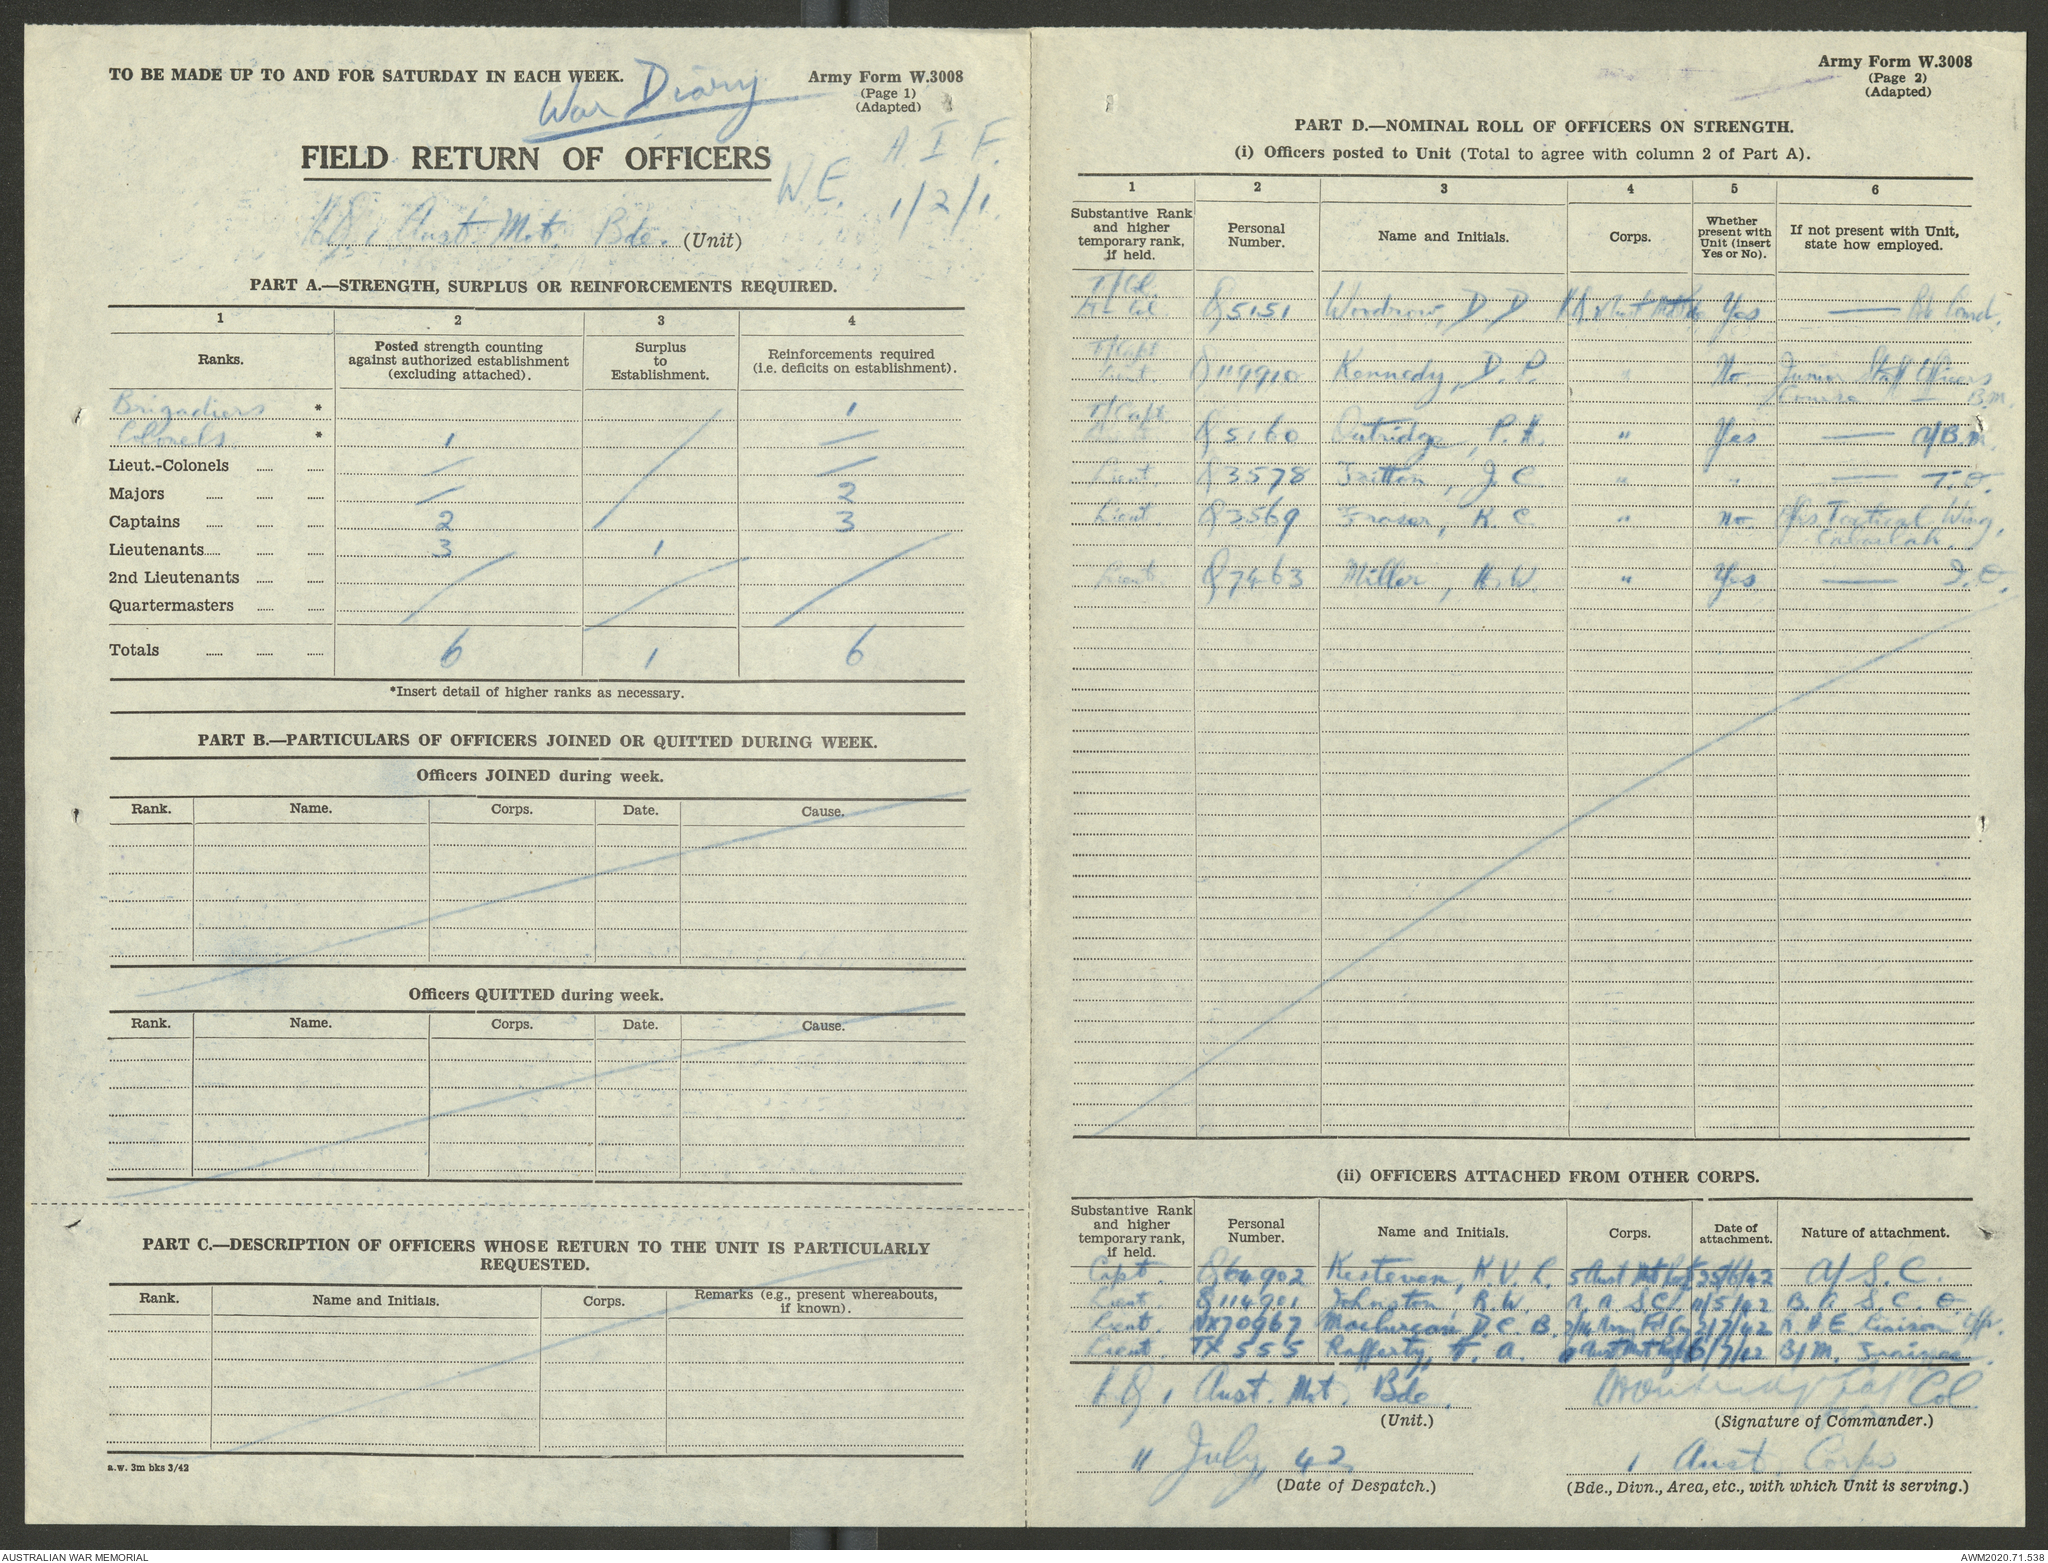 TO BE MADE UP TO AND FOR SATURDAY IN EACH WEEK.
War Diary
Army Form W.3008
(Page 1)
(Adapted)
A I F.
FIELD RETURN OF OFFICERS
W.E. 1/2/1.
HQ 1 Aust. Mot. Bde. (Unit)
PART A.—STRENGTH, SURPLUS OR REINFORCEMENTS REQUIRED.
1 2 3 4
Ranks. Posted strength counting against authorized establishment (excluding attached). Surplus to Establishment. Reinforcements required (i.e. deficits on establishment).
Brigadiers * 1
Colonels * 1 —
Lieut.-Colonels — —
Majors — 2
Captains 2 3
Lieutenants 3 1
2nd Lieutenants
Quartermasters
Totals 6 1 6
*Insert detail of higher ranks as necessary.
PART B.—PARTICULARS OF OFFICERS JOINED OR QUITTED DURING WEEK.
Officers JOINED during week.
Rank. Name. Corps. Date. Cause.
Officers QUITTED during week.
Rank. Name. Corps. Date. Cause.
PART C.—DESCRIPTION OF OFFICERS WHOSE RETURN TO THE UNIT IS PARTICULARLY
REQUESTED.
Rank. Name and Initials. Corps. Remarks (e.g., present whereabouts, if known).
a.w. 3m bks 3/42
Army Form W.3008
(Page 2)
(Adapted)
PART D.—NOMINAL ROLL OF OFFICERS ON STRENGTH.
(i) Officers posted to Unit (Total to agree with column 2 of Part A).
1 2 3 4 5 6
Substantive Rank and higher temporary rank, if held. Personal Number. Name and Initials. Corps. Whether present with Unit (insert Yes or No). If not present with Unit, state how employed.
T/Col
Lt Col Q5151 Woodrow, D D Yes — Bde Comd.
T/Capt
Lieut. Q119910 Kennedy, D. P. " No Junior Staff Officers
Course B.M.
T/Capt
Q5160 Outridge, P. H. " Yes — A/B.M.
Lieut Q3578 Tritton, J. C " " — T.O.
Lieut. Q3569 Fraser, K. C " No Offrs Tactical Wing,
Cabarlah.
Lieut. Q7463 Miller, H. W. " Yes — I.O.
(ii) OFFICERS ATTACHED FROM OTHER CORPS.
Substantive Rank and higher temporary rank, if held. Personal Number. Name and Initials. Corps. Date of attachment. Nature of attachment.
Capt. Q64902 Kesteven, K. V. L. 5 Aust Mot Regt 25/6/42 A/ S. C.
Lieut. Q114901 Johnston, R. W. A. A S. C. 11/5/42 B. A S. C. O.
Lieut. NX70967 D. C. B. 2/7/42 R A E Liaison Offr.
Lieut. TX 555 Rafferty, F. A. Aust Mot Regt 6/7/42 B/M. Trainee.
HQ 1 Aust. Mot. Bde. Col
(Unit.) (Signature of Commander.)
11 July, 42. 1 Aust. Corps
(Date of Despatch.) (Bde., Divn., Area, etc., with which Unit is serving.)
AUSTRALIAN WAR MEMORIAL
AWM2020.71.538